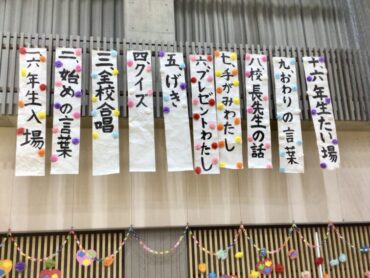 一 六年生入場
二 始めの言葉
三 全校合唱
四 クイズ
五 げき
六 プレゼントわたし
七 手がみわたし
八 校長先生の話
九 おわりの言葉
十 六年生たい場